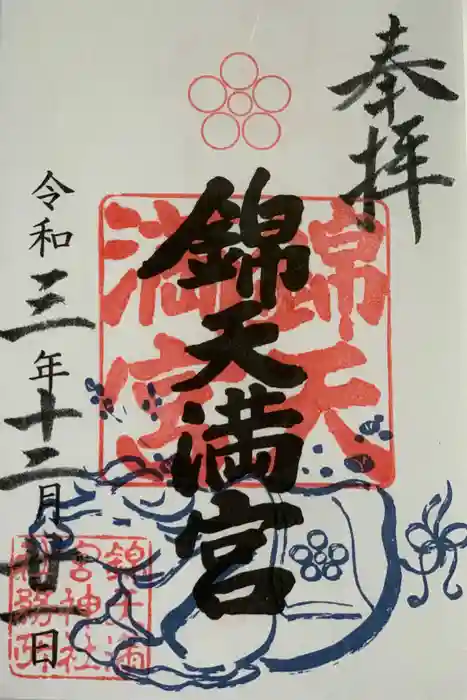 奉拝
錦天満宮
錦天
満宮
令和三年十二月廿一日
錦天満
宮神社